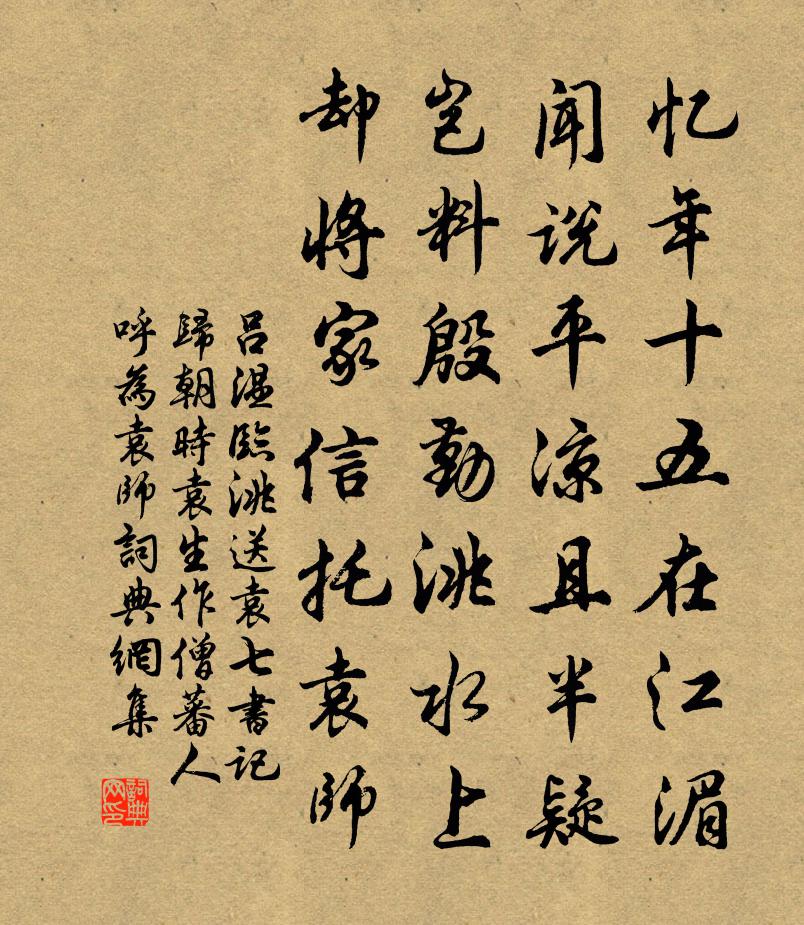 忆年十五在江湄
闻说平凉且半疑
岂料殷勤洮水上
却将家信托袁师
吕温臨洮送袁七書记
歸朝時袁生作僧蕃人
呼為袁师詞典網集
詞典网印